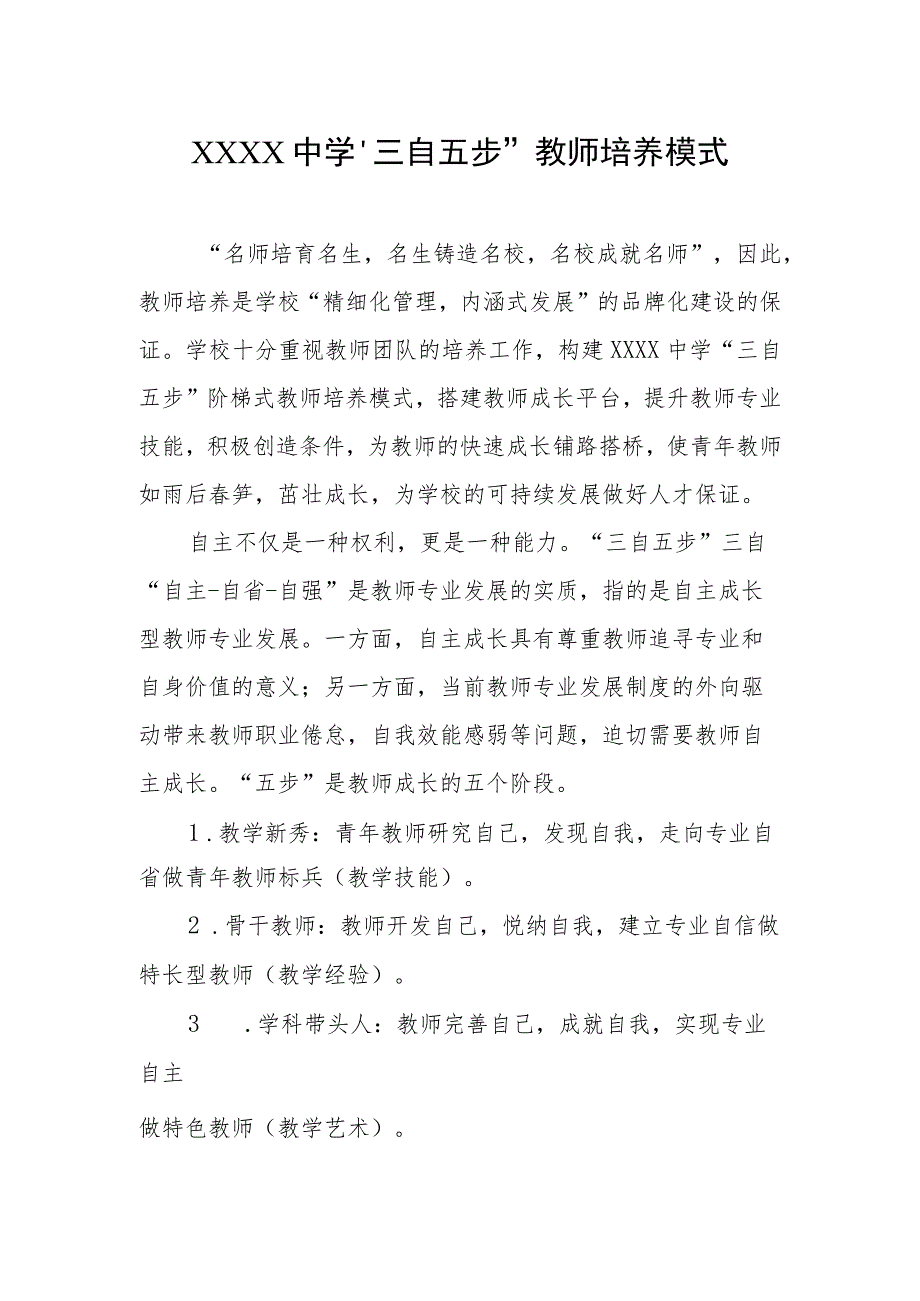 XXXX 中学'三自五步”教师培养模式
“名师培育名生，名生铸造名校，名校成就名师”，因此，
教师培养是学校“精细化管理，内涵式发展”的品牌化建设的保
证。学校十分重视教师团队的培养工作，构建 XXXX 中学“三自
五步”阶梯式教师培养模式，搭建教师成长平台，提升教师专业
技能，积极创造条件，为教师的快速成长铺路搭桥，使青年教师
如雨后春笋，茁壮成长，为学校的可持续发展做好人才保证。
自主不仅是一种权利，更是一种能力。“三自五步”三自
“自主-自省-自强”是教师专业发展的实质，指的是自主成长
型教师专业发展。一方面，自主成长具有尊重教师追寻专业和
自身价值的意义；另一方面，当前教师专业发展制度的外向驱
动带来教师职业倦怠，自我效能感弱等问题，迫切需要教师自
主成长。“五步”是教师成长的五个阶段。
1.教学新秀：青年教师研究自己，发现自我，走向专业自
省做青年教师标兵（教学技能）。
2.骨干教师：教师开发自己，悦纳自我，建立专业自信做
特长型教师（教学经验）。
3 .学科带头人：教师完善自己，成就自我，实现专业
自主
做特色教师（教学艺术）。